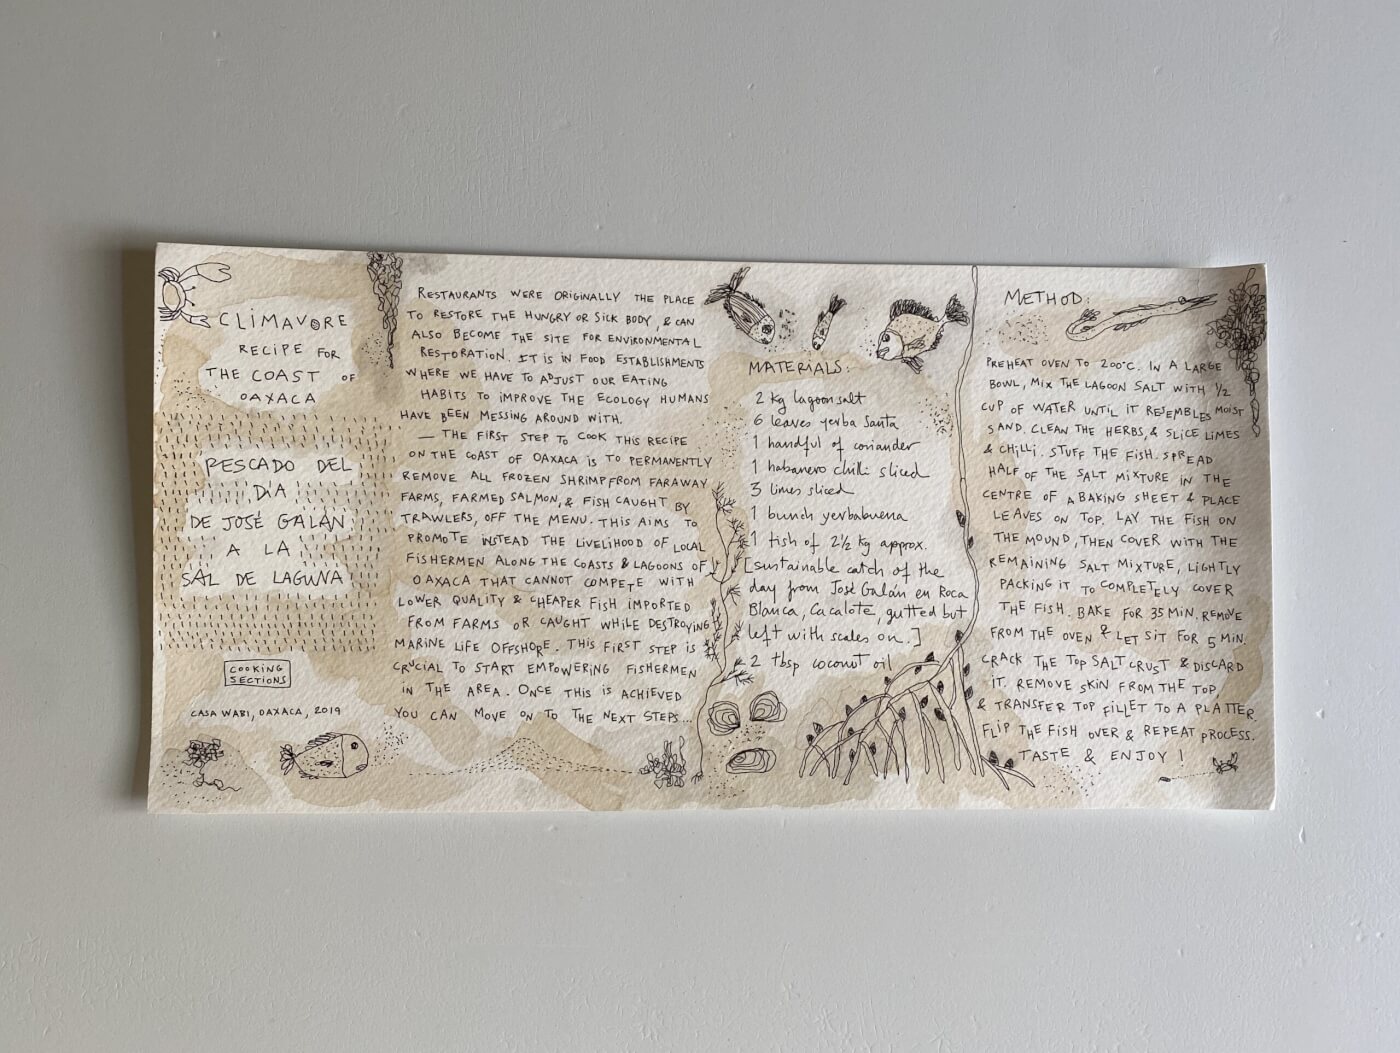 CLIMAVORE
RECIPE FOR
THE COAST OF
OAXACA
PESCADO DEL
DÍA
DE JOSÉ GALÁN
A LA
SAL DE LAGUNA
COOKING
SECTIONS
CASA WABI, OAXACA, 2019
RESTAURANTS WERE ORIGINALLY THE PLACE
TO RESTORE THE HUNGRY OR SICK BODY, & CAN
ALSO BECOME THE SITE FOR ENVIRONMENTAL
RESTORATION. IT IS IN FOOD ESTABLISHMENTS
WHERE WE HAVE TO ADJUST OUR EATING
HABITS TO IMPROVE THE ECOLOGY HUMANS
HAVE BEEN MESSING AROUND WITH.
— THE FIRST STEP TO COOK THIS RECIPE
ON THE COAST OF OAXACA IS TO PERMANENTLY
REMOVE ALL FROZEN SHRIMP FROM FARAWAY
FARMS, FARMED SALMON, & FISH CAUGHT BY
TRAWLERS, OFF THE MENU. THIS AIMS TO
PROMOTE INSTEAD THE LIVELIHOOD OF LOCAL
FISHERMEN ALONG THE COASTS & LAGOONS OF
OAXACA THAT CANNOT COMPETE WITH
LOWER QUALITY & CHEAPER FISH IMPORTED
FROM FARMS OR CAUGHT WHILE DESTROYING
MARINE LIFE OFFSHORE. THIS FIRST STEP IS
CRUCIAL TO START EMPOWERING FISHERMEN
IN THE AREA. ONCE THIS IS ACHIEVED
YOU CAN MOVE ON TO THE NEXT STEPS...
MATERIALS:
2 kg lagoon salt
6 leaves yerba santa
1 handful of coriander
1 habanero chilli sliced
3 limes sliced
1 bunch yerbabuena
1 fish of 2½ kg approx.
[sustainable catch of the
day from José Galán en Roca
Blanca, Cacalote, gutted but
left with scales on.]
2 tbsp coconut oil
METHOD:
PREHEAT OVEN TO 200°C. IN A LARGE
BOWL, MIX THE LAGOON SALT WITH 1/2
CUP OF WATER UNTIL IT RESEMBLES MOIST
SAND. CLEAN THE HERBS, & SLICE LIMES
& CHILLI. STUFF THE FISH. SPREAD
HALF OF THE SALT MIXTURE IN THE
CENTRE OF A BAKING SHEET & PLACE
LEAVES ON TOP. LAY THE FISH ON
THE MOUND, THEN COVER WITH THE
REMAINING SALT MIXTURE, LIGHTLY
PACKING IT TO COMPLETELY COVER
THE FISH. BAKE FOR 35 MIN. REMOVE
FROM THE OVEN & LET SIT FOR 5 MIN.
CRACK THE TOP SALT CRUST & DISCARD
IT. REMOVE SKIN FROM THE TOP,
& TRANSFER TOP FILLET TO A PLATTER.
FLIP THE FISH OVER & REPEAT PROCESS.
TASTE & ENJOY!